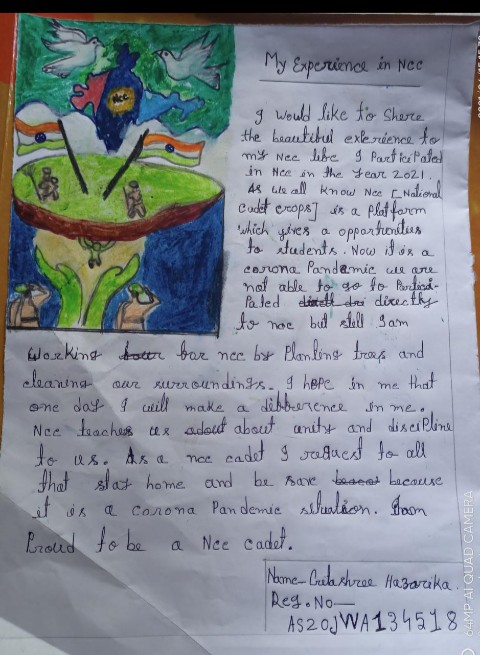 NCC
My Experience in Ncc
I would like to shere
the beautibul experience to
my Ncc libe I Participated
in Ncc in the year 2021.
As we all know Ncc [National
Cadet crops] is a Platform
which gives a opportunities
to students. Now it is a
corona Pandemic we are
not able to go to Partici-
Pated directly
to ncc but still I am
Working bor ncc by Planting trees and
cleaning our surroundings. I hope in me that
one day I will make a dibberence in me.
Ncc teaches us about unity and discipline
to us. As a ncc cadet I request to all
that stay home and be save because
it is a corona Pandemic situation. I am
Proud to be a Ncc cadet.
Name- Hazarika.
Reg. No—
AS20JWA134518
64MP AI QUAD CAMERA